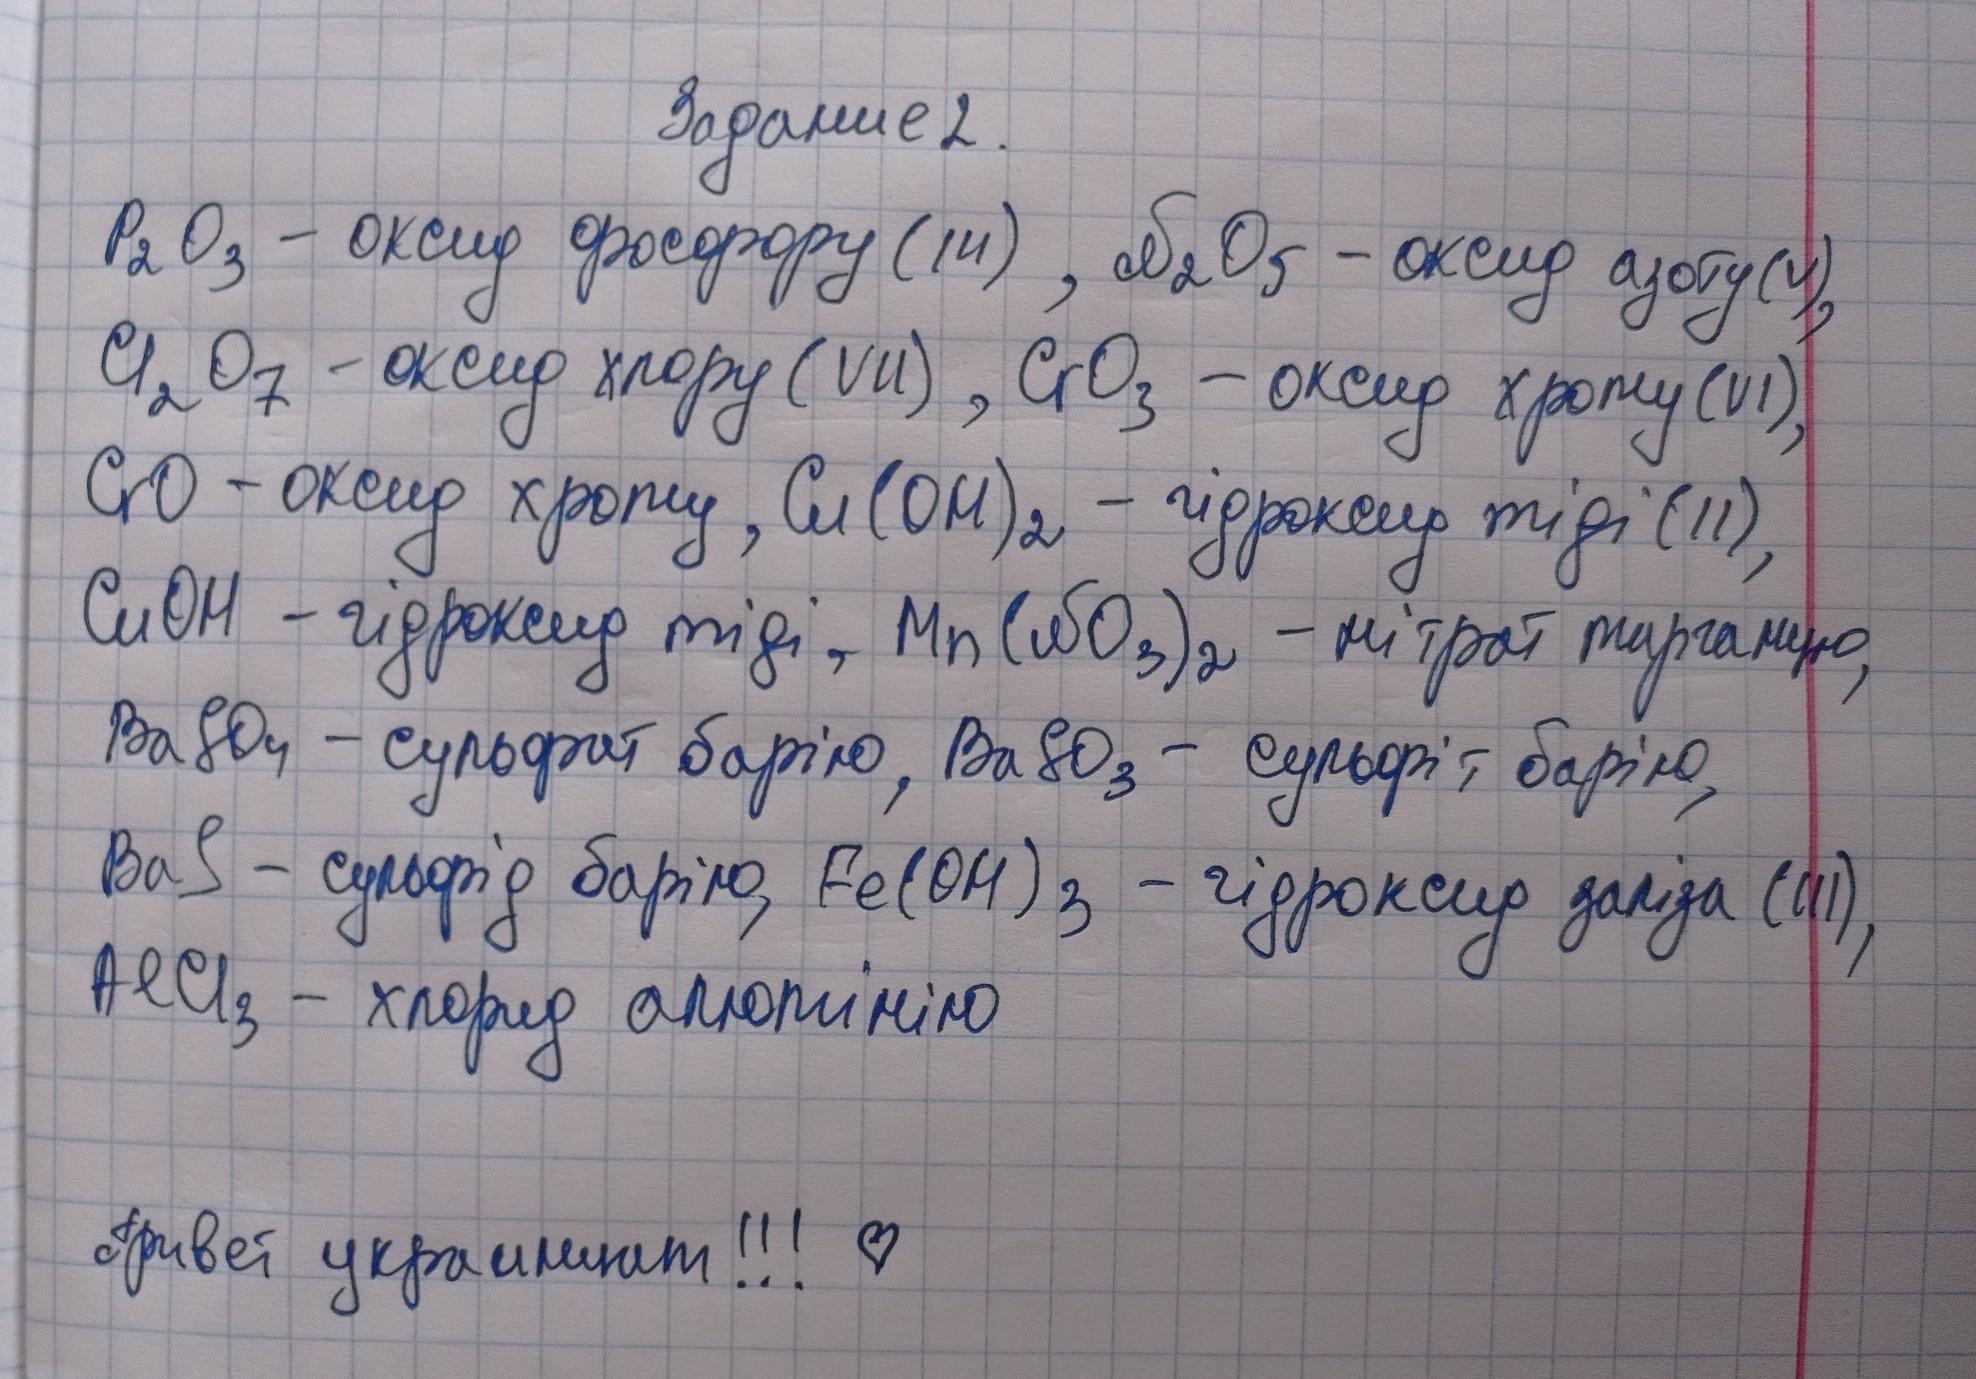 Задание 2.
P₂O₃ – оксид фосфору (III), N₂O₅ – оксид азоту (V),
Cl₂O₇ – оксид хлору (VII), CrO₃ – оксид хрому (VI),
CrO – оксид хрому, Cu(OH)₂ – гідроксид міді (II),
CuOH – гідроксид міді, Mn(NO₃)₂ – нітрат марганцю,
BaSO₄ – сульфат барію, BaSO₃ – сульфіт барію,
BaS – сульфід барію, Fe(OH)₃ – гідроксид заліза (III),
AlCl₃ – хлорид алюмінію
Привет украинцам!!! ♡